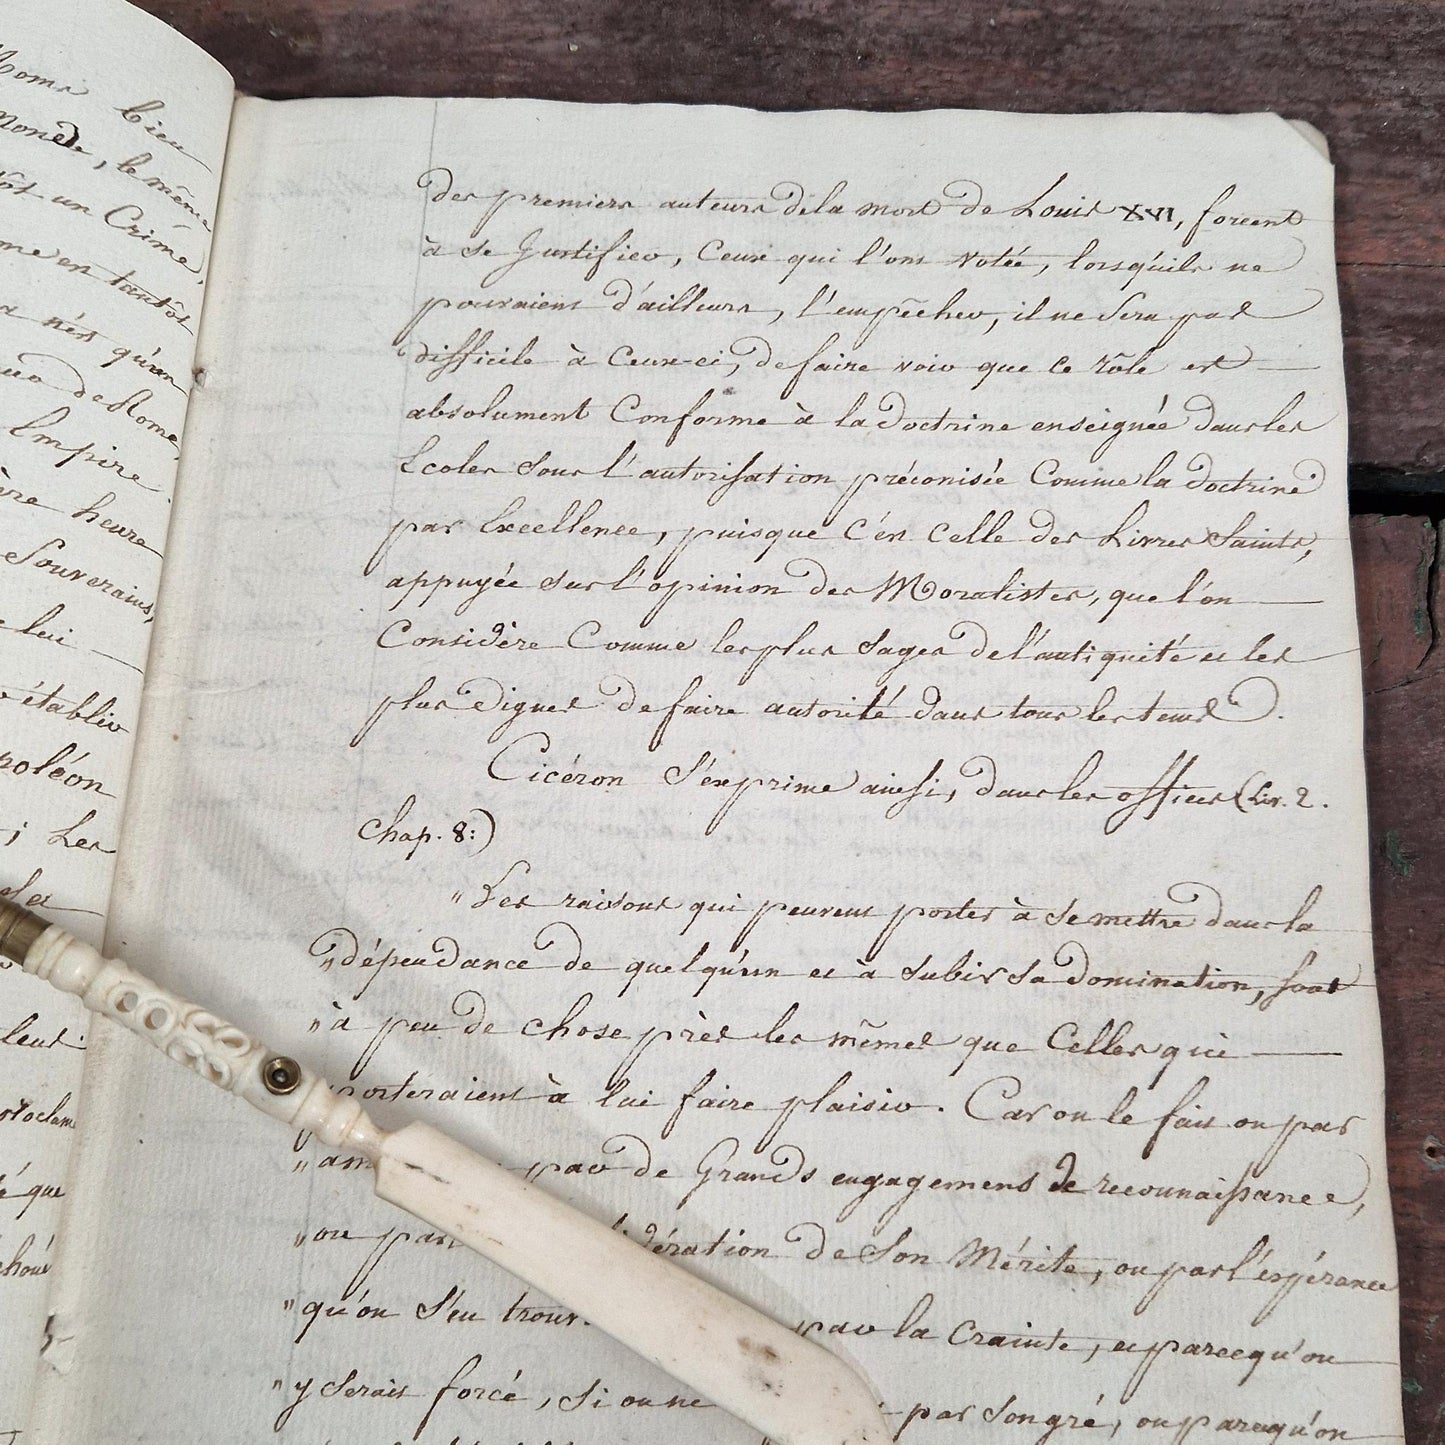 Rome bien
Monde, le même
tôt un Crime,
me en tantôt
a nés qu'un
de Rome,
Empire.
ère heure
Souverains,
lui
établir
poléon
; Les
leur
proclam
é que
des premiers auteurs de la mort de Louis XVI, forcent
à se Justifier, Ceux qui l'ont votée, lorsqu'ils ne
pouvaient d'ailleurs, l'empêcher, il ne Sera pas
difficile à Ceux-ci, de faire voir que ce rôle est
absolument Conforme à la Doctrine enseignée dans les
Ecoles sous l'autorisation préconisée Comme la doctrine
par Excellence, puisque c'en celle des Livres Saints,
appuyée sur l'opinion des Moralistes, que l'on
Considère Comme les plus Sages de l'antiquité et les
plus dignes de faire autorité dans tous les tems.
Cicéron S'exprime ainsi, dans les offices (Liv. 2.
chap. 8:)
" Les raisons qui peuvent porter à se mettre dans la
" dépendance de quelqu'un et à subir sa domination, sont
" à peu de chose près les mêmes que Celles qui
porteraient à lui faire plaisir. Car on le fait ou par
" am par de Grands engagemens de reconnaissance,
" ou par dération de Son Mérite, ou par l'espérance
" qu'on S'en trouv. par la Crainte, et parcequ'on
" y Serait forcé, Si on ne par Son gré, ou parcequ'on